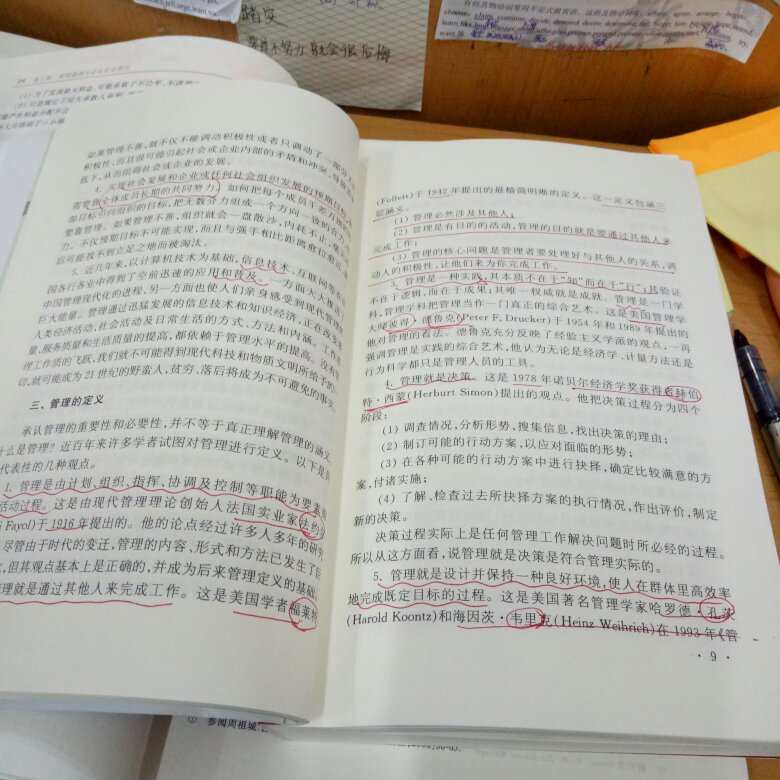 踏实
若是不努力 就会很后悔
如果管理不善，就不仅不能调动积极性或者只调动了一部分人
积极性，而且很可能引起社会或企业内部的矛盾和冲突，导致
低下，从而阻碍社会或企业的发展。
4. 实现社会发展和企业或任何社会组织发展的预期目标
需要靠全体成员长期的共同努力。如何把每个成员千差万别的
部目标引向组织的目标，把无数分力组成一个方向一致的合力，
要靠管理。如果管理不善，组织就会一盘散沙，内耗不止，毫无
力。不仅预期目标不可能实现，而且与强手相比距离愈拉愈
后可能找不到立足之地而被淘汰。
5. 近几年来，以计算机技术为基础，信息技术、互联网等在
国各行各业中得到了空前迅速的应用和普及。一方面大大推
中国管理现代化的进程，另一方面也使人们亲身感受到现代管理
巨大能量。管理通过迅猛发展的信息技术和知识经济，正在改变
人类经济活动、社会活动及日常生活的方式、方法和内涵。工作
量、服务质量和生活质量的提高，都依赖于管理水平的提高。没有
理工作质的飞跃，我们就不可能得到现代科技和物质文明所给予的
切，就可能成为 21 世纪的野蛮人，贫穷、落后将成为不可避免的事实
三、管理的定义
承认管理的重要性和必要性，并不等于真正理解管理的涵义
什么是管理？近百年来许多学者试图对管理进行定义。以下是
代表性的几种观点。
1. 管理是由计划、组织、指挥、协调及控制等职能为要素
活动过程。这是由现代管理理论创始人法国实业家法约
Fayol)于 1916 年提出的。他的论点经过许多人多年的研究
尽管由于时代的变迁，管理的内容、形式和方法已发生了巨
，但其观点基本上是正确的，并成为后来管理定义的基础。
管理就是通过其他人来完成工作。这是美国学者福莱特
(Follett)于 1942 年提出的最精简明晰的定义。这一定义包涵三
层涵义。
(1) 管理必然涉及其他人；
(2) 管理是有目的的活动，管理的目的就是要通过其他人来
完成工作；
(3) 管理的核心问题是管理者要处理好与其他人的关系，调
动人的积极性，让他们来为你完成工作。
3. 管理是一种实践，其本质不在于“知”而在于“行”；其验证
不在于逻辑，而在于成果；其唯一权威就是成就。管理是一门学
科，管理学科把管理当作一门真正的综合艺术。这是美国管理学
大师彼得·德鲁克(Peter F. Drucker)于 1954 年和 1989 年提出的
他对管理的看法。德鲁克充分反映了经验主义学派的观点，一再
强调管理是实践的综合艺术，他认为无论是经济学、计量方法还是
行为科学都只是管理人员的工具。
4. 管理就是决策。这是 1978 年诺贝尔经济学奖获得者赫伯
特·西蒙(Herburt Simon)提出的观点。他把决策过程分为四个
阶段：
(1) 调查情况，分析形势，搜集信息，找出决策的理由；
(2) 制订可能的行动方案，以应对面临的形势；
(3) 在各种可能的行动方案中进行抉择，确定比较满意的方
案，付诸实施；
(4) 了解、检查过去所抉择方案的执行情况，作出评价，制定
新的决策。
决策过程实际上是任何管理工作解决问题时所必经的过程。
所以从这方面看，说管理就是决策是符合管理实际的。
5. 管理就是设计并保持一种良好环境，使人在群体里高效率
地完成既定目标的过程。这是美国著名管理学家哈罗德·孔茨
(Harold Koontz)和海因茨·韦里克(Heinz Weihrich)在 1993 年《管
· 9 ·